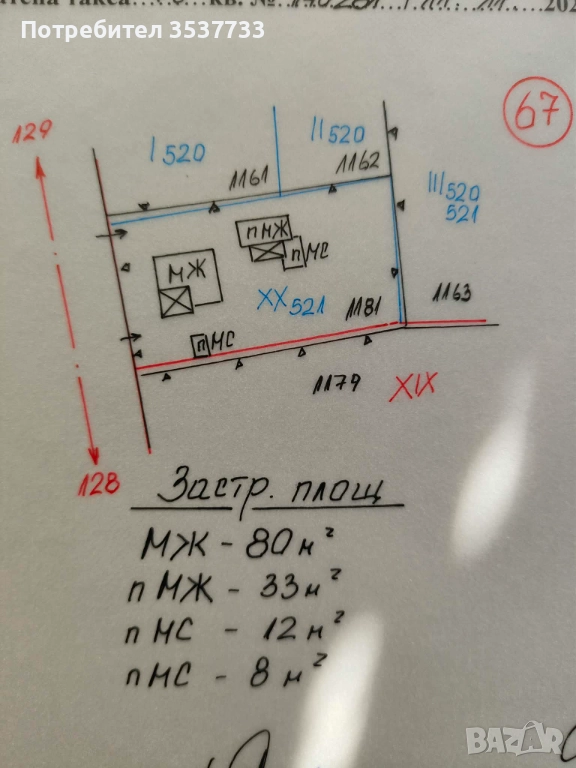 Потребител 3537733
такса
кв. №
202
67
129
I 520
II 520
1161
1162
III 520
521
п МЖ
п МС
МЖ
XX 521
1181
1163
п МС
1179
XIX
128
Застр. площ
МЖ - 80 м²
п МЖ - 33 м²
п МС - 12 м²
п МС - 8 м²
BAZAR